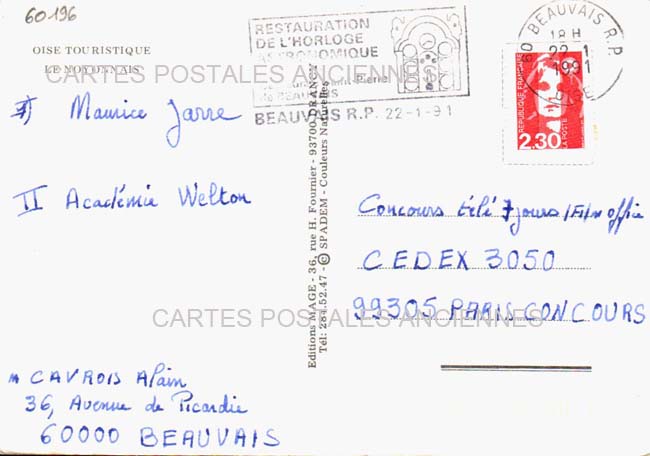 60.196
OISE TOURISTIQUE
LE NOYONNAIS
RESTAURATION
DE L'HORLOGE
ASTRONOMIQUE
de BEAUVAIS
BEAUVAIS R.P. 22-1-91
60 BEAUVAIS R.P.
18 H
22-1
1991
REPUBLIQUE FRANÇAISE
LA POSTE
2.30
CARTES POSTALES ANCIENNES
I) Maurice Jarre
II Académie Welton
Editions MAGE - 36, rue H. Fournier - 93700 DRANCY
Tél: 284.52.47 - © SPADEM - Couleurs Naturelles
Concours télé 7 jours / Film office
CEDEX 3050
99305 PARIS-CONCOURS
CARTES POSTALES ANCIENNES
M CAVROIS Alain
36, Avenue de Picardie
60000 BEAUVAIS